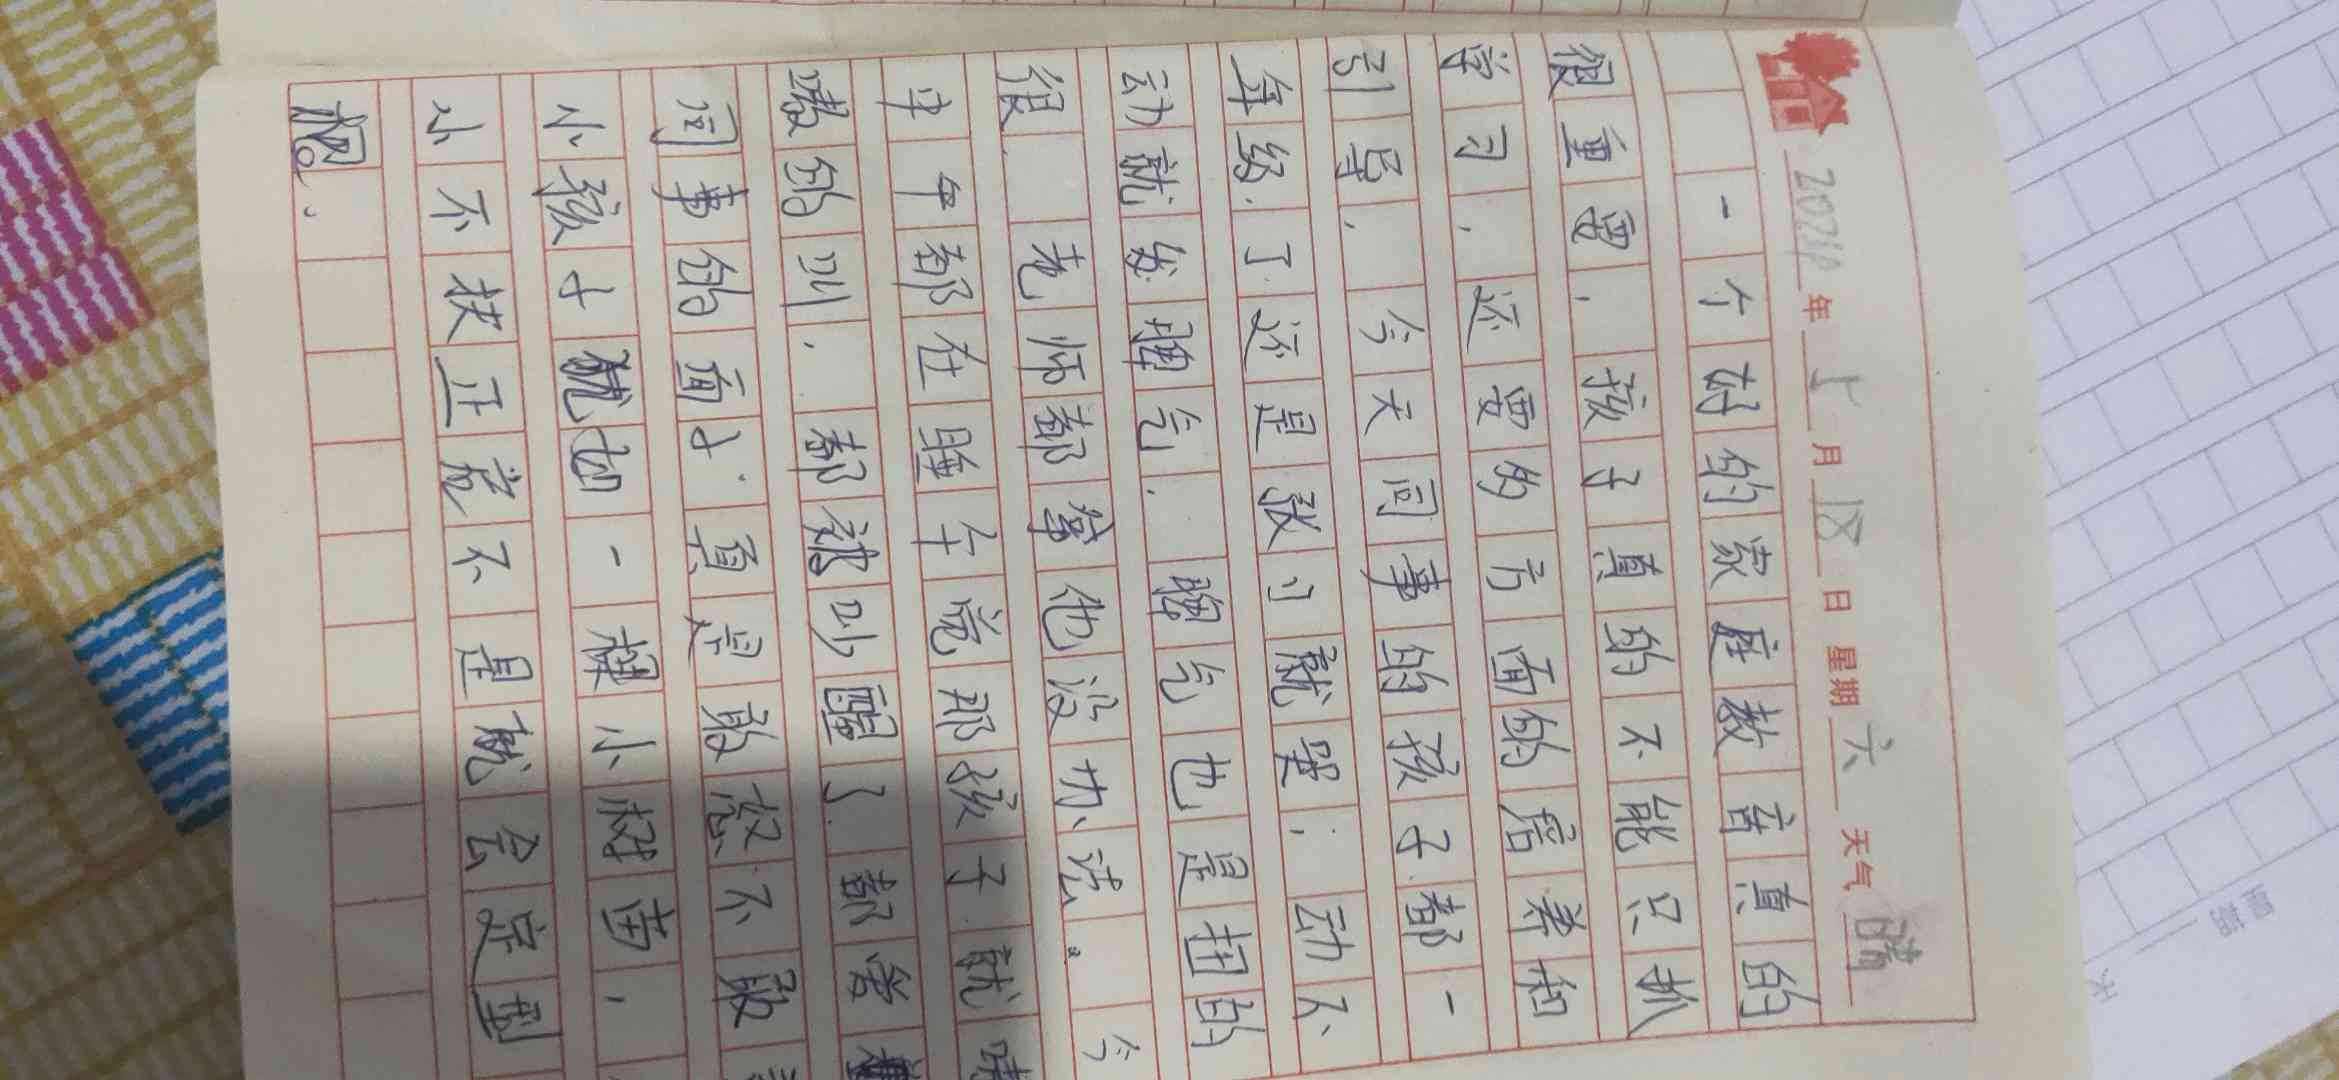 2021年 月18日 星期六 天气 晴
一个好的家庭教育真的
很重要.孩子真的不能只抓
学习.还要多方面的培养和
引导.今天同事的孩子都一
年级.了还是张口就骂.动不
动就发脾气.脾气也是扭的
很.老师都拿他没办法。今
中午都在睡午觉那孩子就嗷
嗷的叫.都被吵醒了.都当着
同事的面上.真是敢怒不敢
小孩十就如一棵小树苗,
小不扶正完不是就会定型
。
星期 天